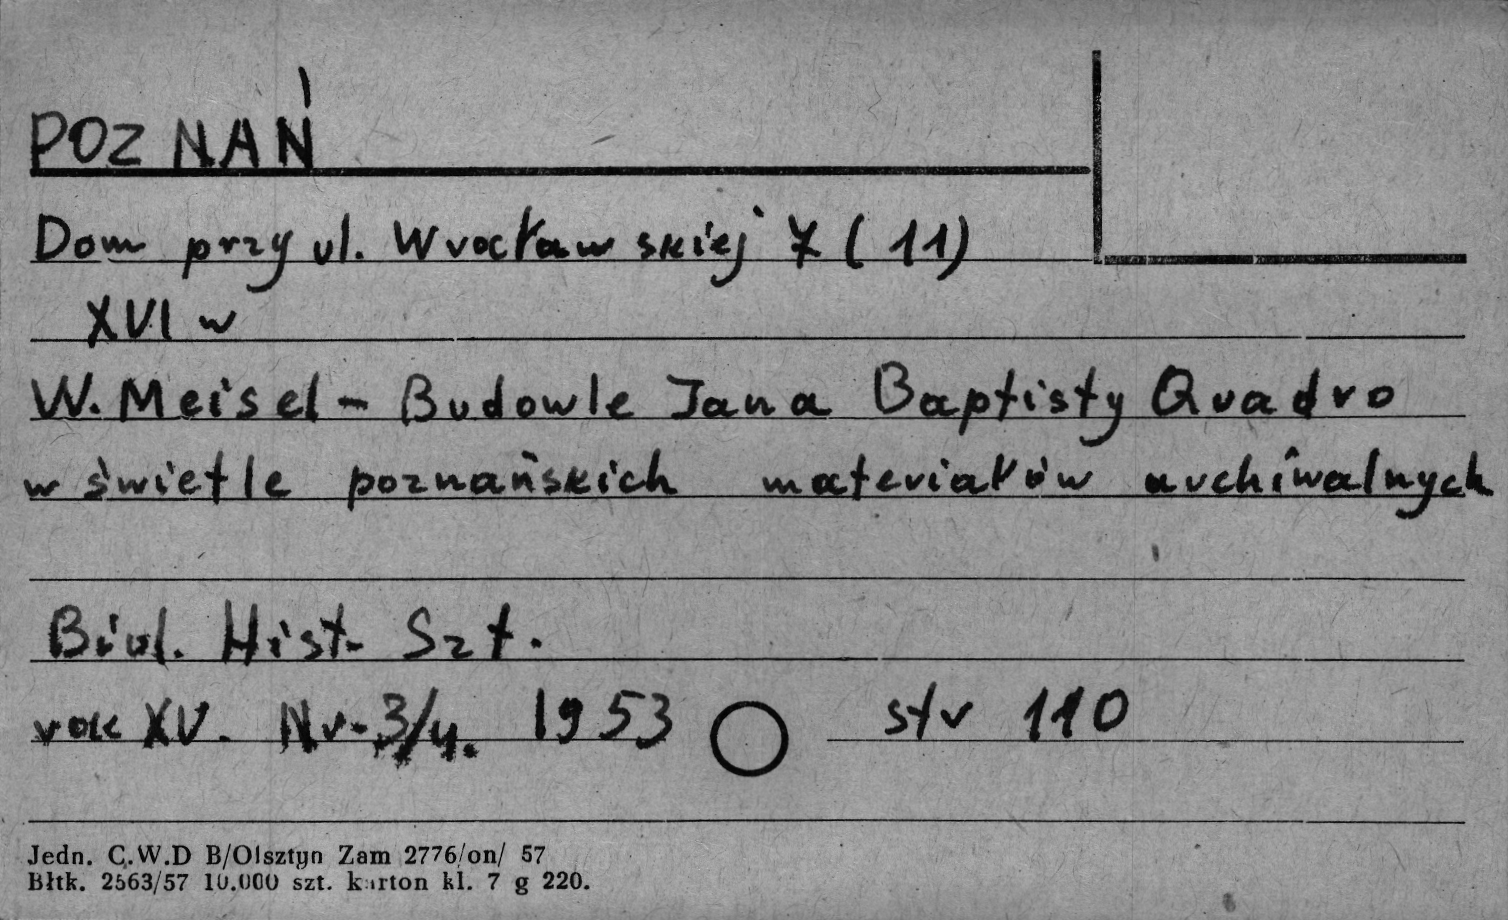 POZNAŃ
Dom przy ul. Wrocławskiej 7 (11)
XVI w
W. Meisel - Budowle Jana Baptisty Quadro
w świetle poznańskich materiałów archiwalnych
Biul. Hist. Szt.
rok XV. Nr. 3/4. 1953 str 110
Jedn. C.W.D B/Olsztyn Zam 2776/on/ 57
Błtk. 2563/57 10.000 szt. karton kl. 7 g 220.